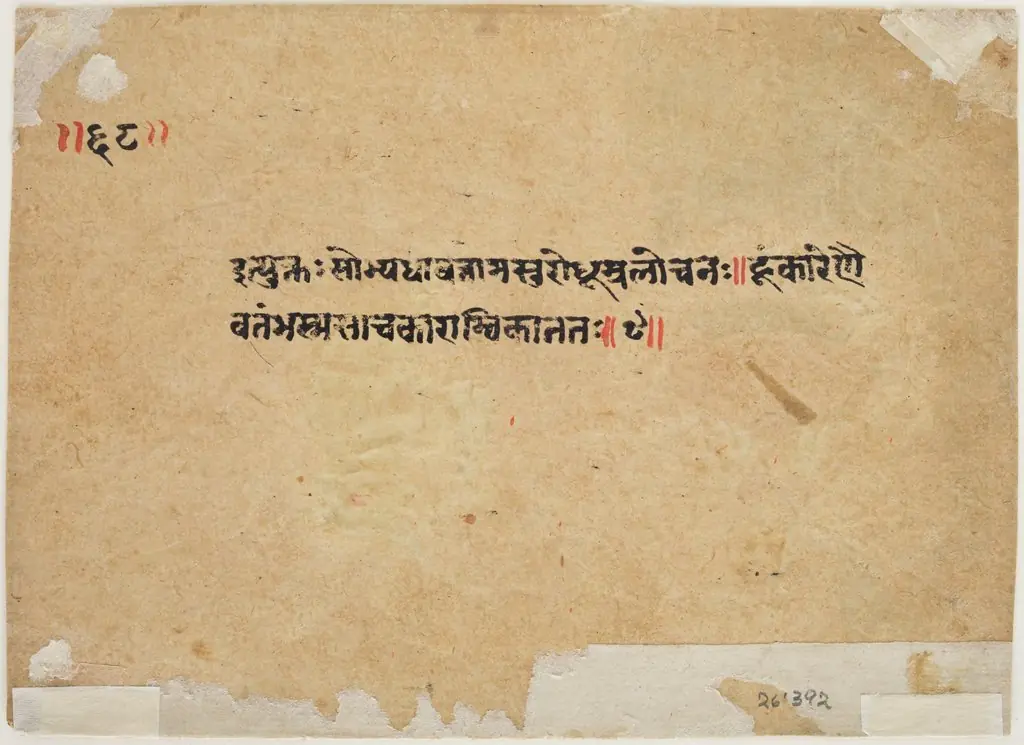 ॥६८॥
इत्युक्तः सोभ्यधावत्तामसुरोधूम्रलोचनः॥हूंकारेणै
वतंभस्मसाचकाराम्बिकाततः॥८॥
26'392